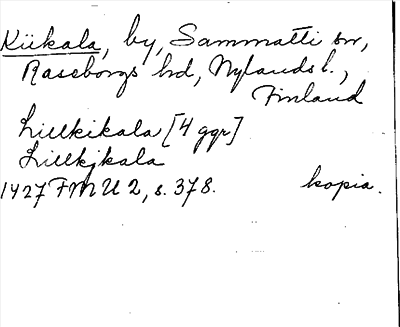 Kiikala, by, Sammatti sn,
Raseborgs hd, Nylands l.,
Finland
Lillkikala [4 ggr]
Lillkjkala
1427 FMU 2, s. 378. kopia.